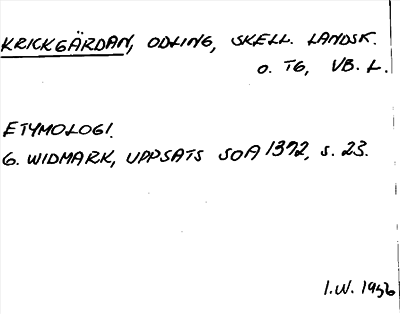 KRICKGÄRDAN, ODLING, SKELL. LANDSK.
O. TG, VB. L.
ETYMOLOGI.
G. WIDMARK, UPPSATS SOA 1372, s. 23.
I.W. 1956